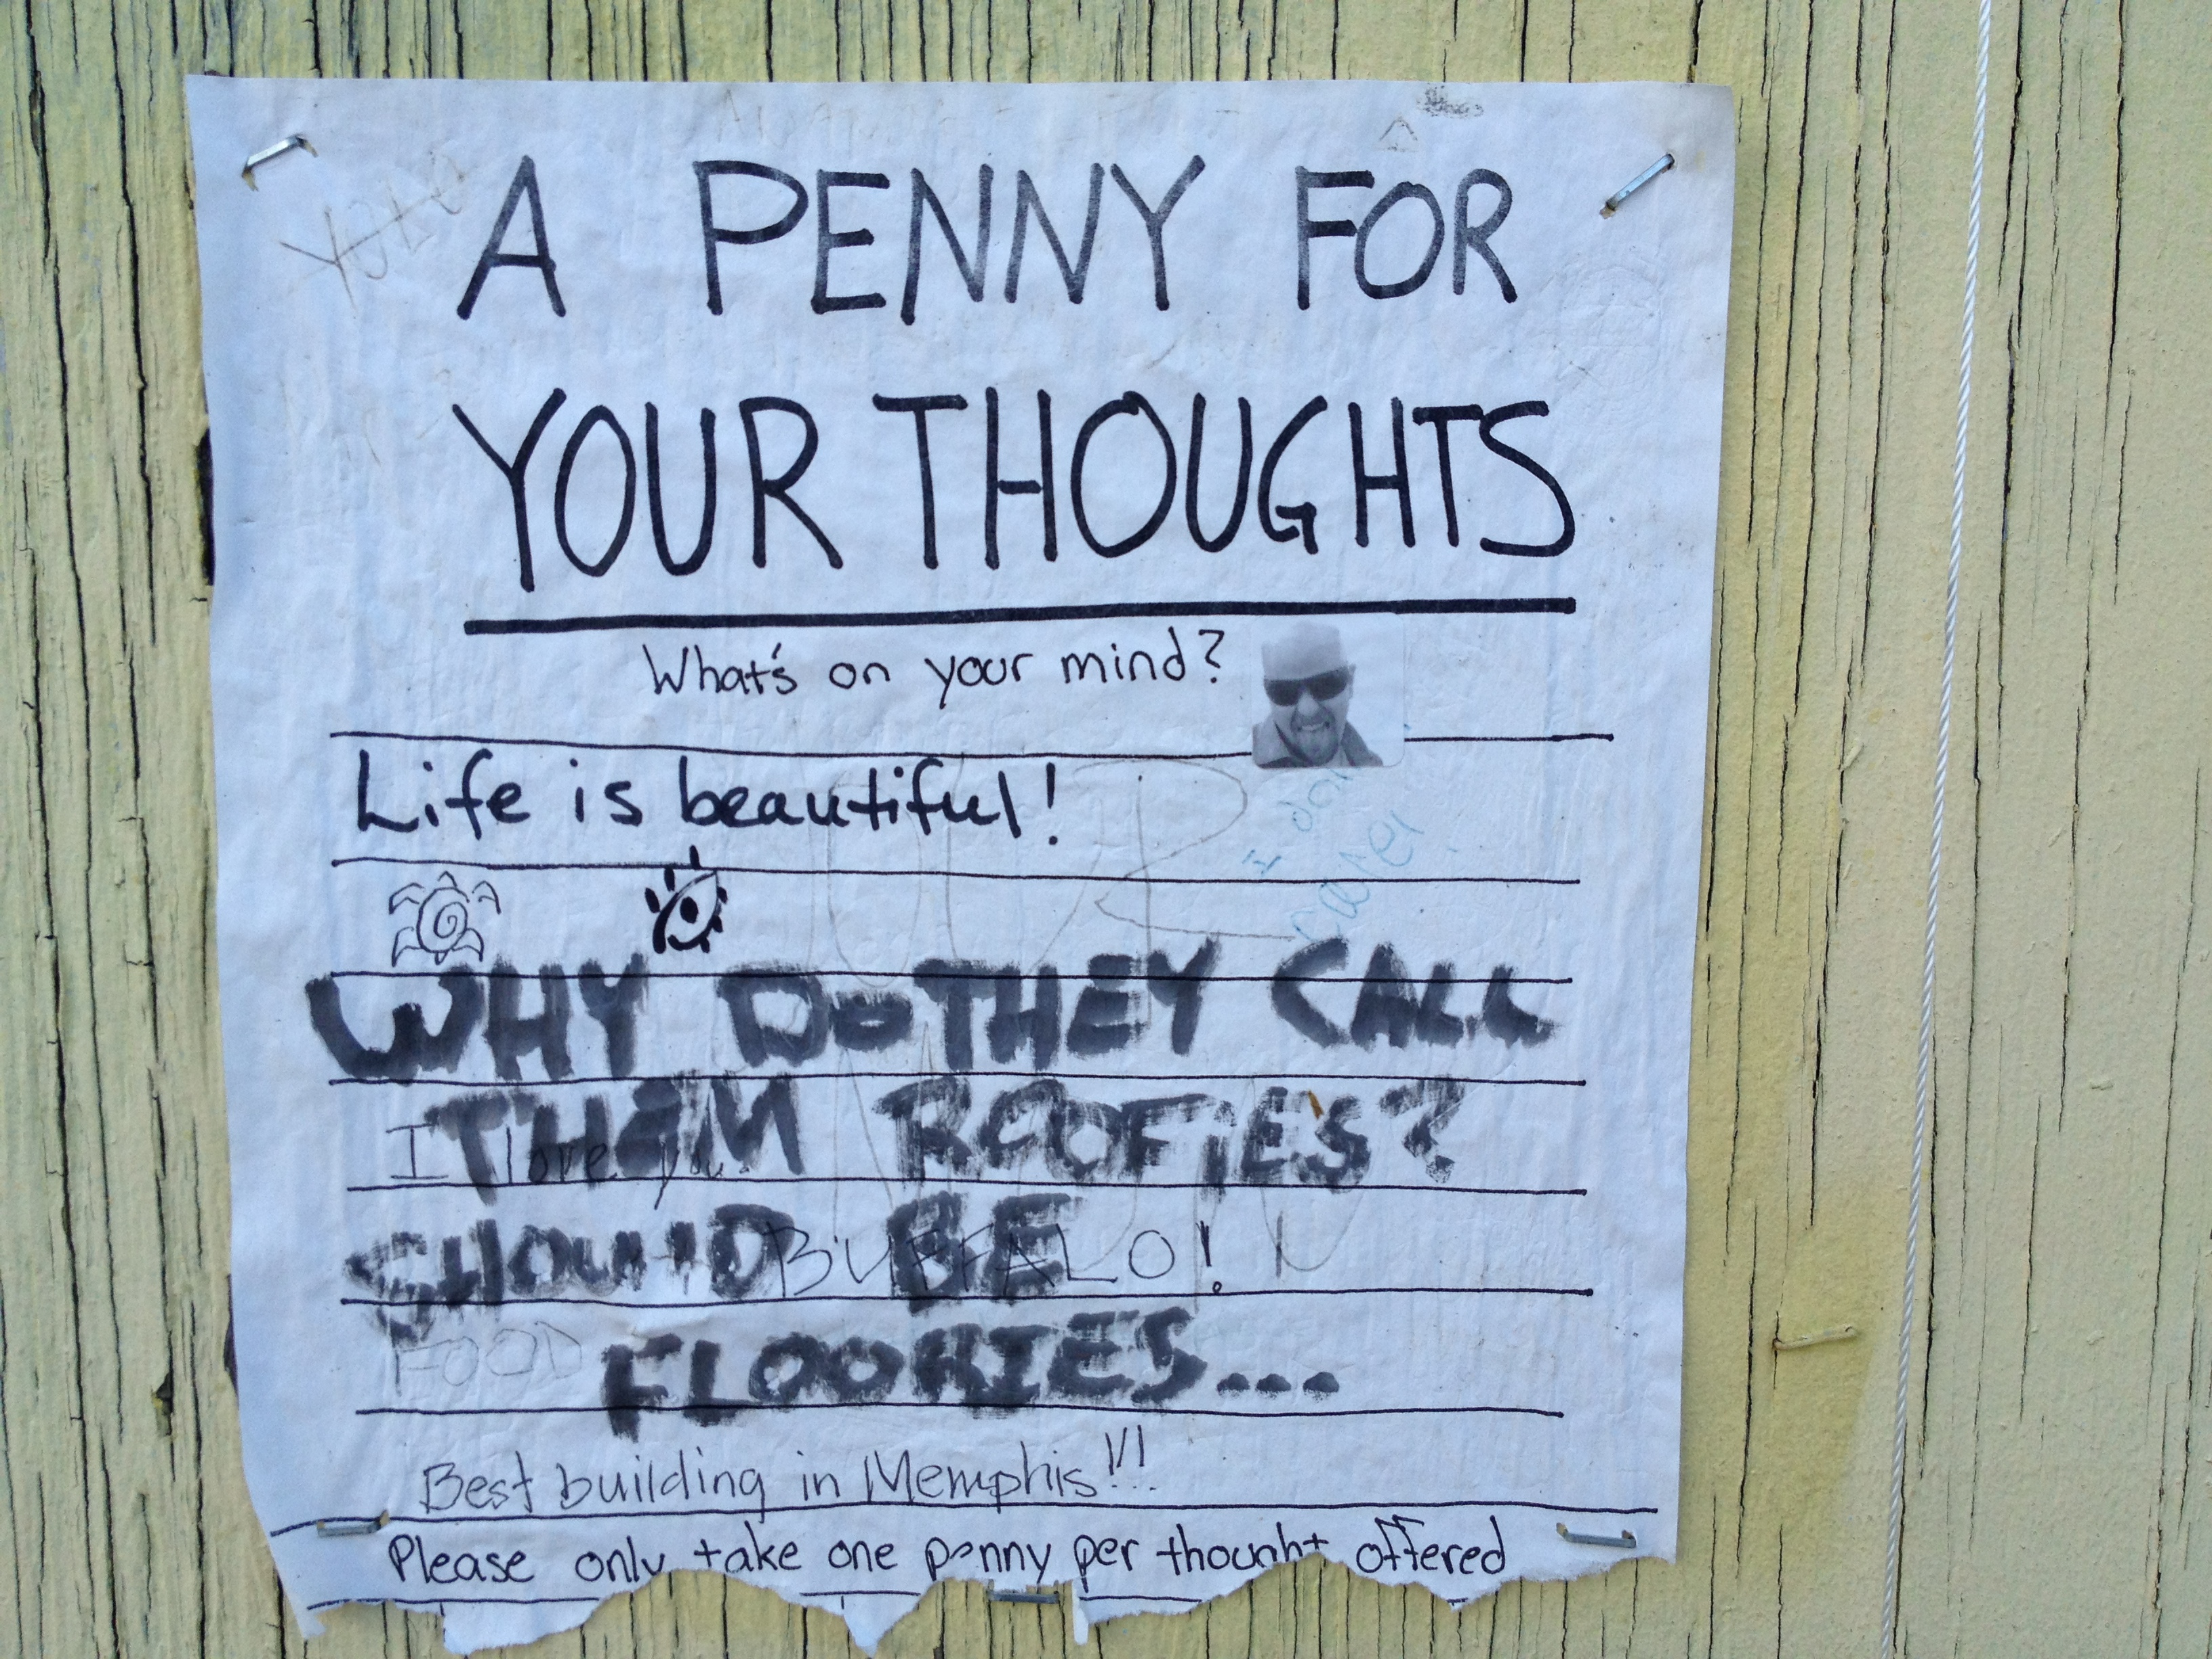 YOLO
A PENNY FOR
YOUR THOUGHTS
What's on your mind?
Life is beautiful!
I don't
care!
WHY DO THEY CALL
THEM ROOFIES?
I love you.
SHOULD BE
BUFFALO!
FOOD
FLOORIES...
Best building in Memphis!!!
Please only take one penny per thought offered